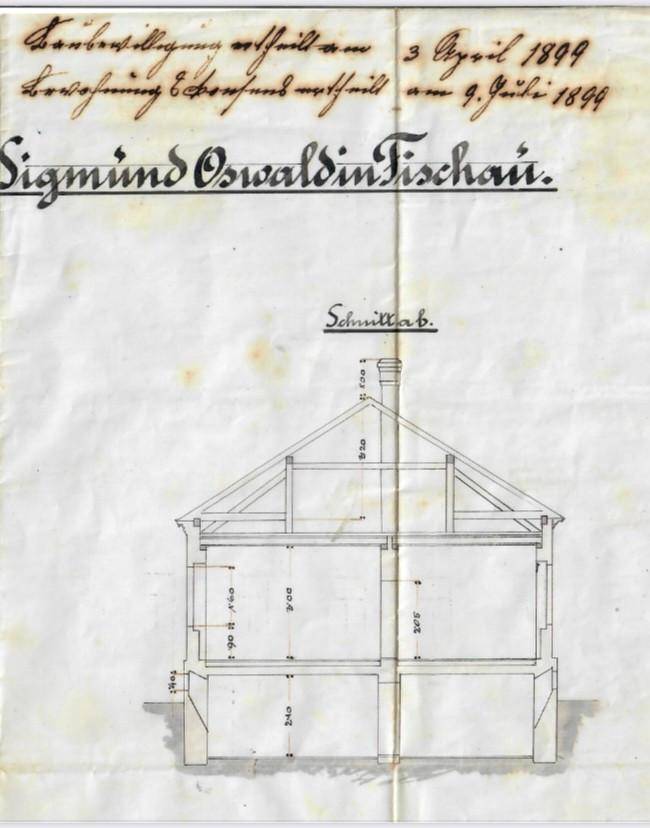 Baubewilligung ertheilt am 3 April 1899
Bewohnungs Consens ertheilt am 9. Juli 1899
Sigmund Oswald in Fischau.
Schnitt a b.
1·00
3·20
1·60
90
3·00
2·05
40
2·40